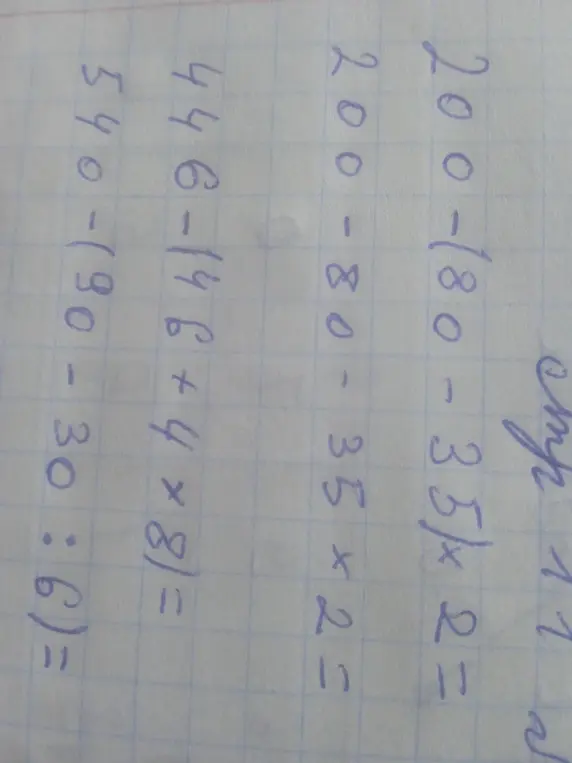 стр 11
200-(80-35)×2=
200-80-35×2=
446-(46+4×8)=
540-(90-30:6)=